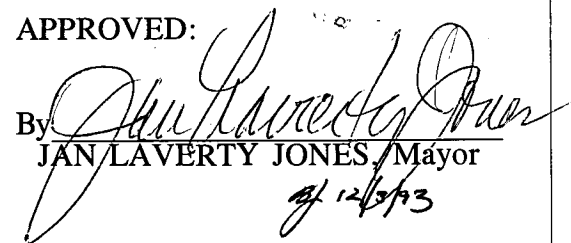 APPROVED:
By Jan Laverty Jones
JAN LAVERTY JONES, Mayor
12/3/93